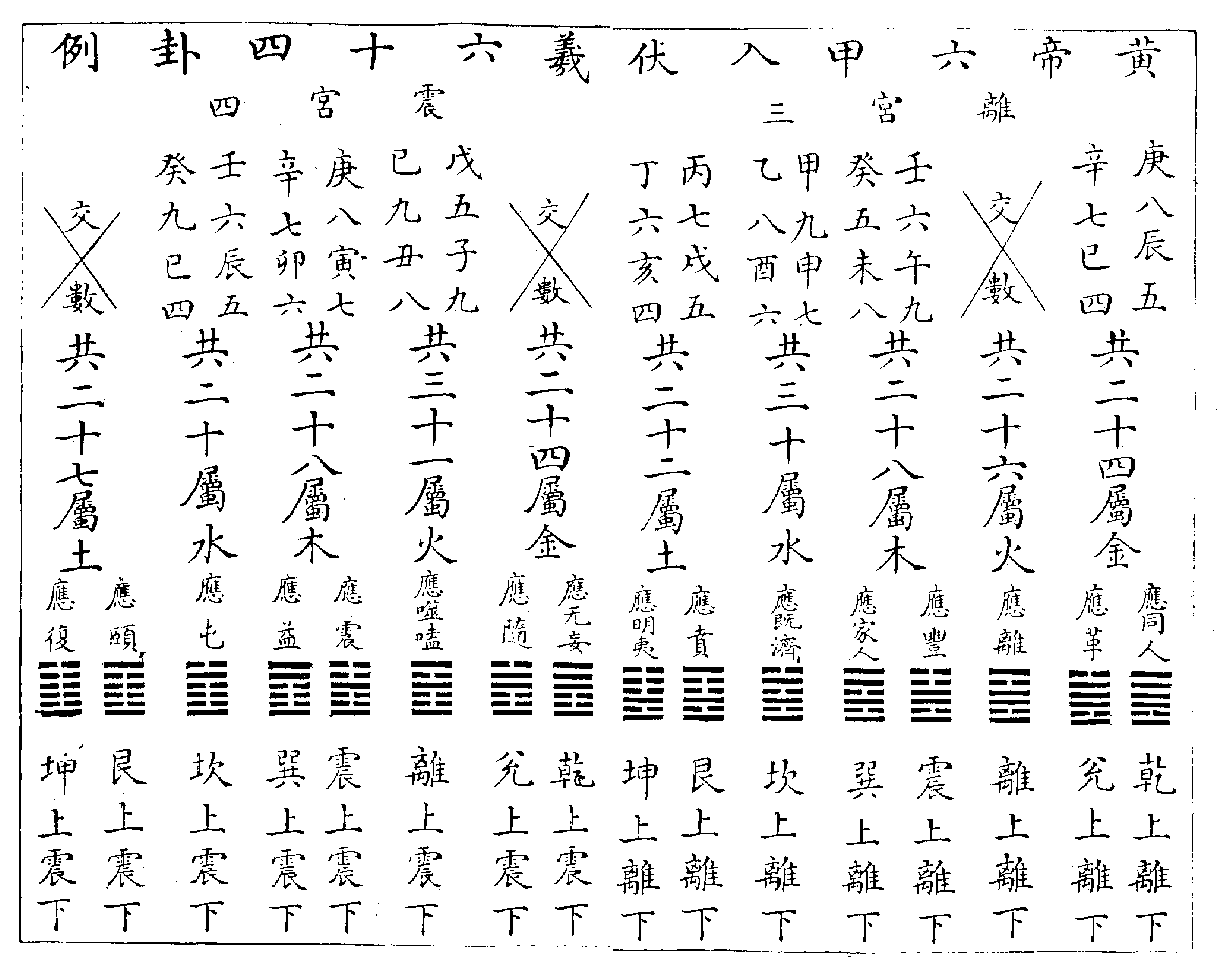 黃帝六甲入伏羲六十四卦例
離宮三
庚八辰五
辛七巳四
共二十四屬金
應同人
應革
乾上離下
兊上離下
交數
共二十六屬火
應離
離上離下
壬六午九
癸五未八
共二十八屬木
應豐
應家人
震上離下
巽上離下
甲九申七
乙八酉六
共三十屬水
應既濟
坎上離下
丙七戌五
丁六亥四
共二十二屬土
應賁
應明夷
艮上離下
坤上離下
震宮四
交數
共二十四屬金
應无妄
應隨
乾上震下
兊上震下
戊五子九
己九丑八
共三十一屬火
應噬嗑
離上震下
庚八寅七
辛七卯六
共二十八屬木
應震
應益
震上震下
巽上震下
壬六辰五
癸九巳四
共二十屬水
應屯
坎上震下
交數
共二十七屬土
應頤
應復
艮上震下
坤上震下